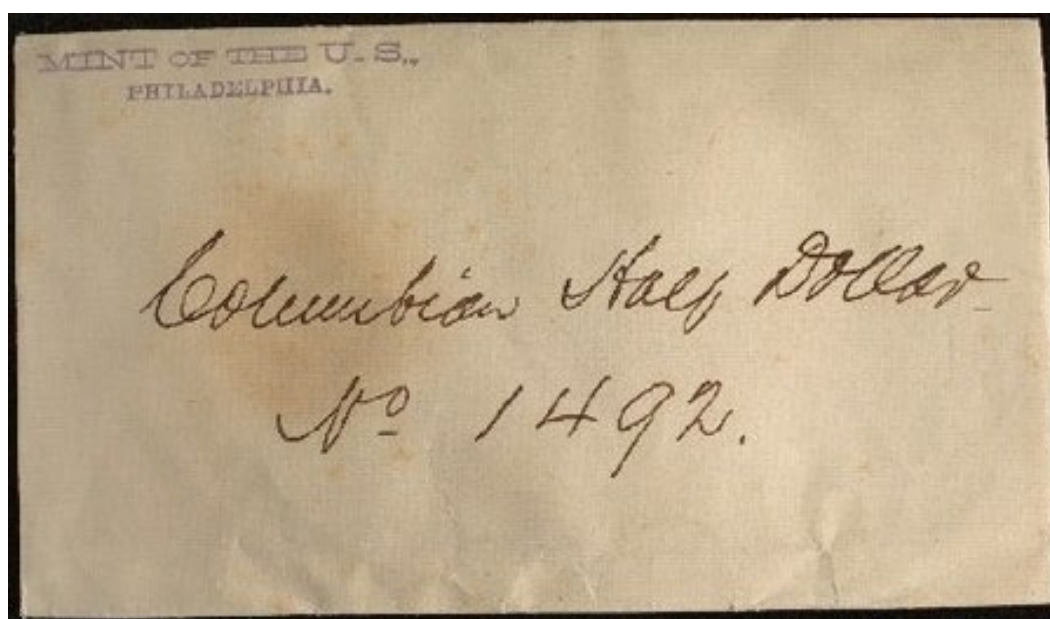 MINT OF THE U.S.,
PHILADELPHIA.
Columbian Half Dollar
Nº 1492.